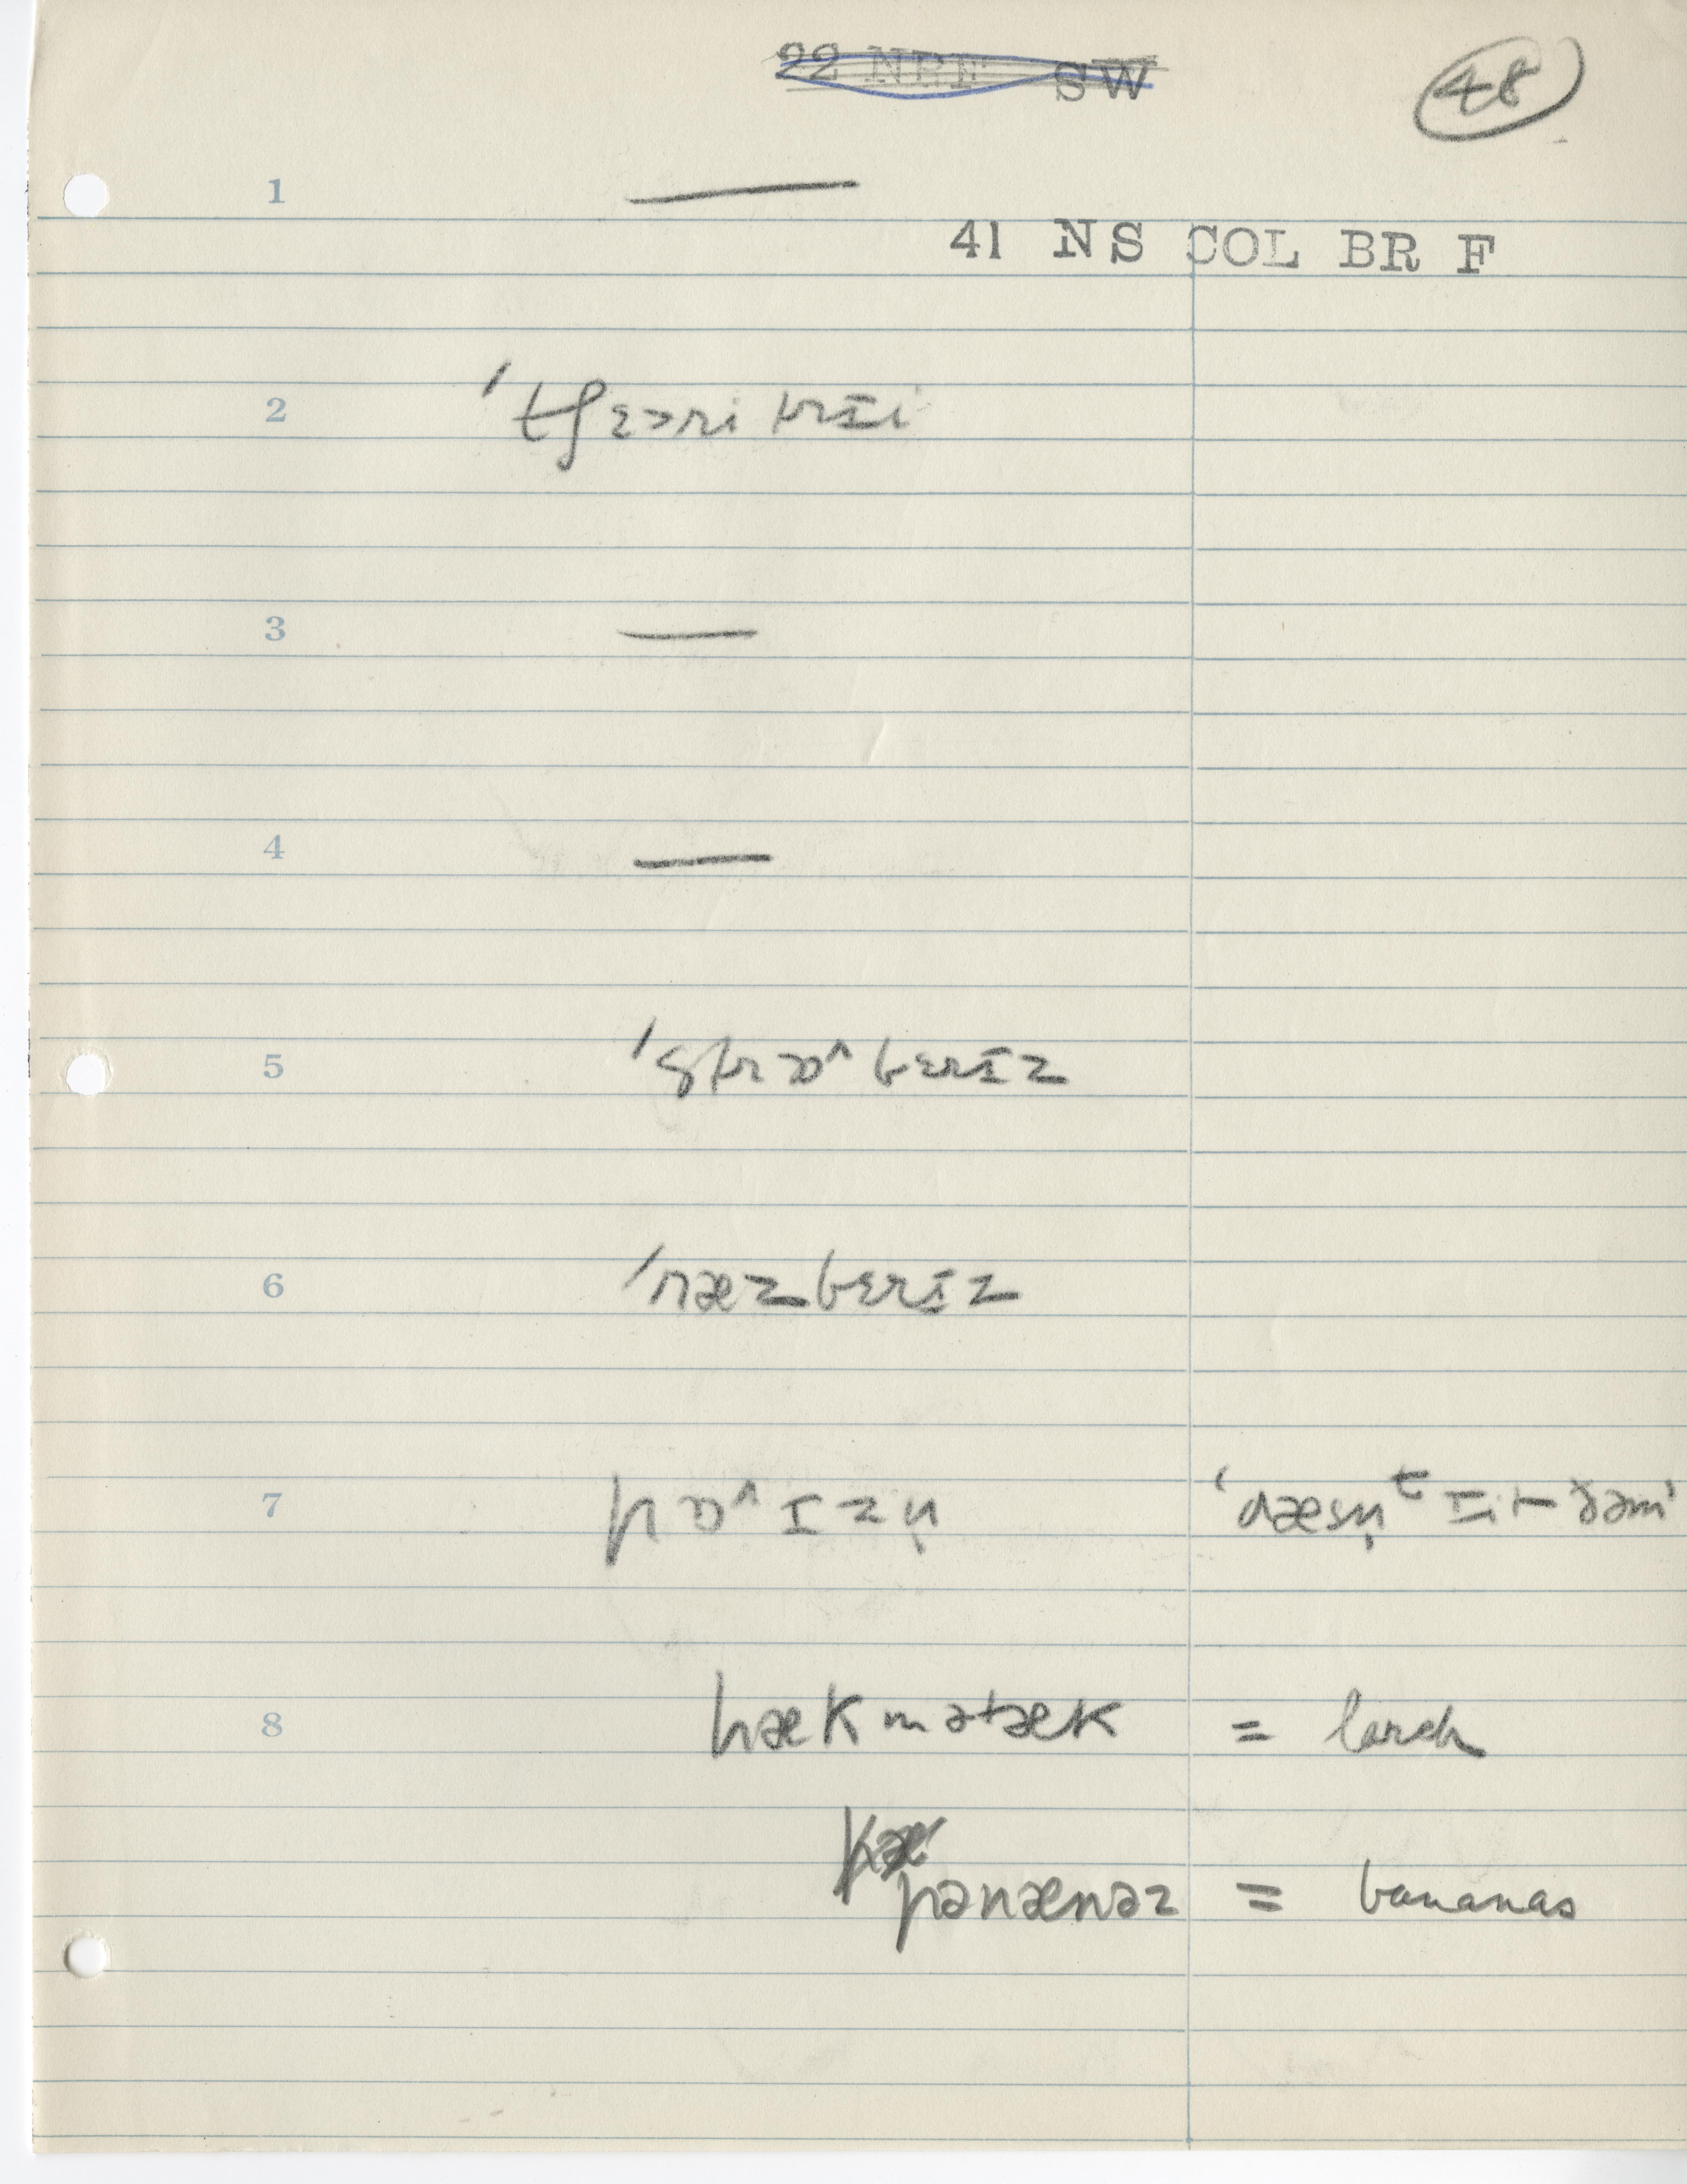 22 NRF SW
48
1 —
41 NS COL BR F
2 ˈtʃɛɚri trɪi
3 —
4 —
5 ˈstrɒ^bɛrɪz
6 ˈræzbɛrɪz
7 pɒ^ɪzn̩ ˈdæsn̩ᵗ ɪit ðəm'
8 hækmətæk = larch
pænænəz = bananas